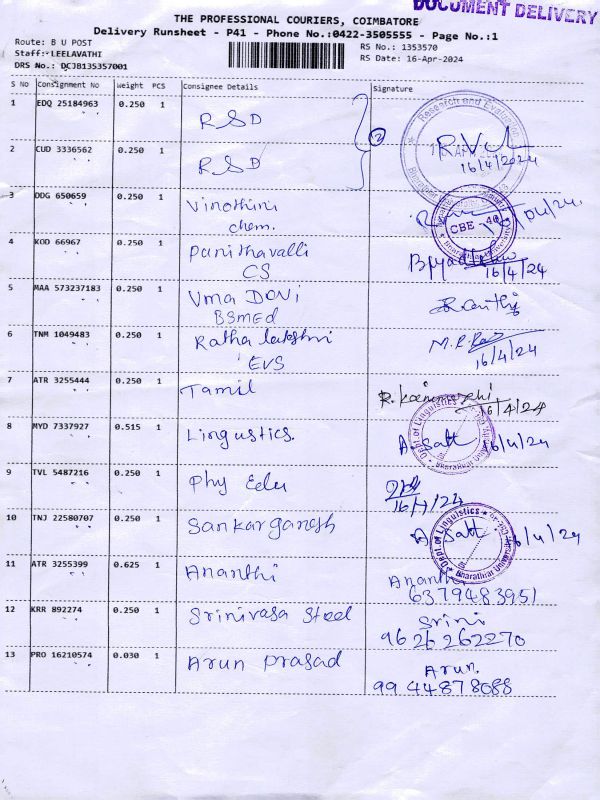 DOCUMENT DELIVERY
THE PROFESSIONAL COURIERS, COIMBATORE
Delivery Runsheet - P41 - Phone No.:0422-3505555 - Page No.:1
Route: B U POST
RS No.: 1353570
Staff: LEELAVATHI
RS Date: 16-Apr-2024
DRS No.: DCJB135357001
S No Consignment No Weight PCS Consignee Details Signature
1 EDQ 25184963 0.250 1 RSD
2 CUD 3336562 0.250 1 RSD 16/4/2024
3 DDG 650659 0.250 1 Vinothini
chem.
4 KOD 66967 0.250 1 Punithavalli
CS 16/4/24
5 MAA 573237183 0.250 1 Uma Devi
BSMEd
6 TNM 1049483 0.250 1 Ratha lakshmi
EVS 16/4/24
7 ATR 3255444 0.250 1 Tamil 16/4/24
8 MYD 7337927 0.515 1 Lingustics. 16/4/24
9 TVL 5487216 0.250 1 Phy Edu
10 TNJ 22580707 0.250 1 Sankarganesh 16/4/24
11 ATR 3255399 0.625 1 Ananthi Ananthi
6379483951
12 KRR 892274 0.250 1 Srinivasa Steel Srini
9626262270
13 PRO 16210574 0.030 1 Arun prasad Arun.
9944878088